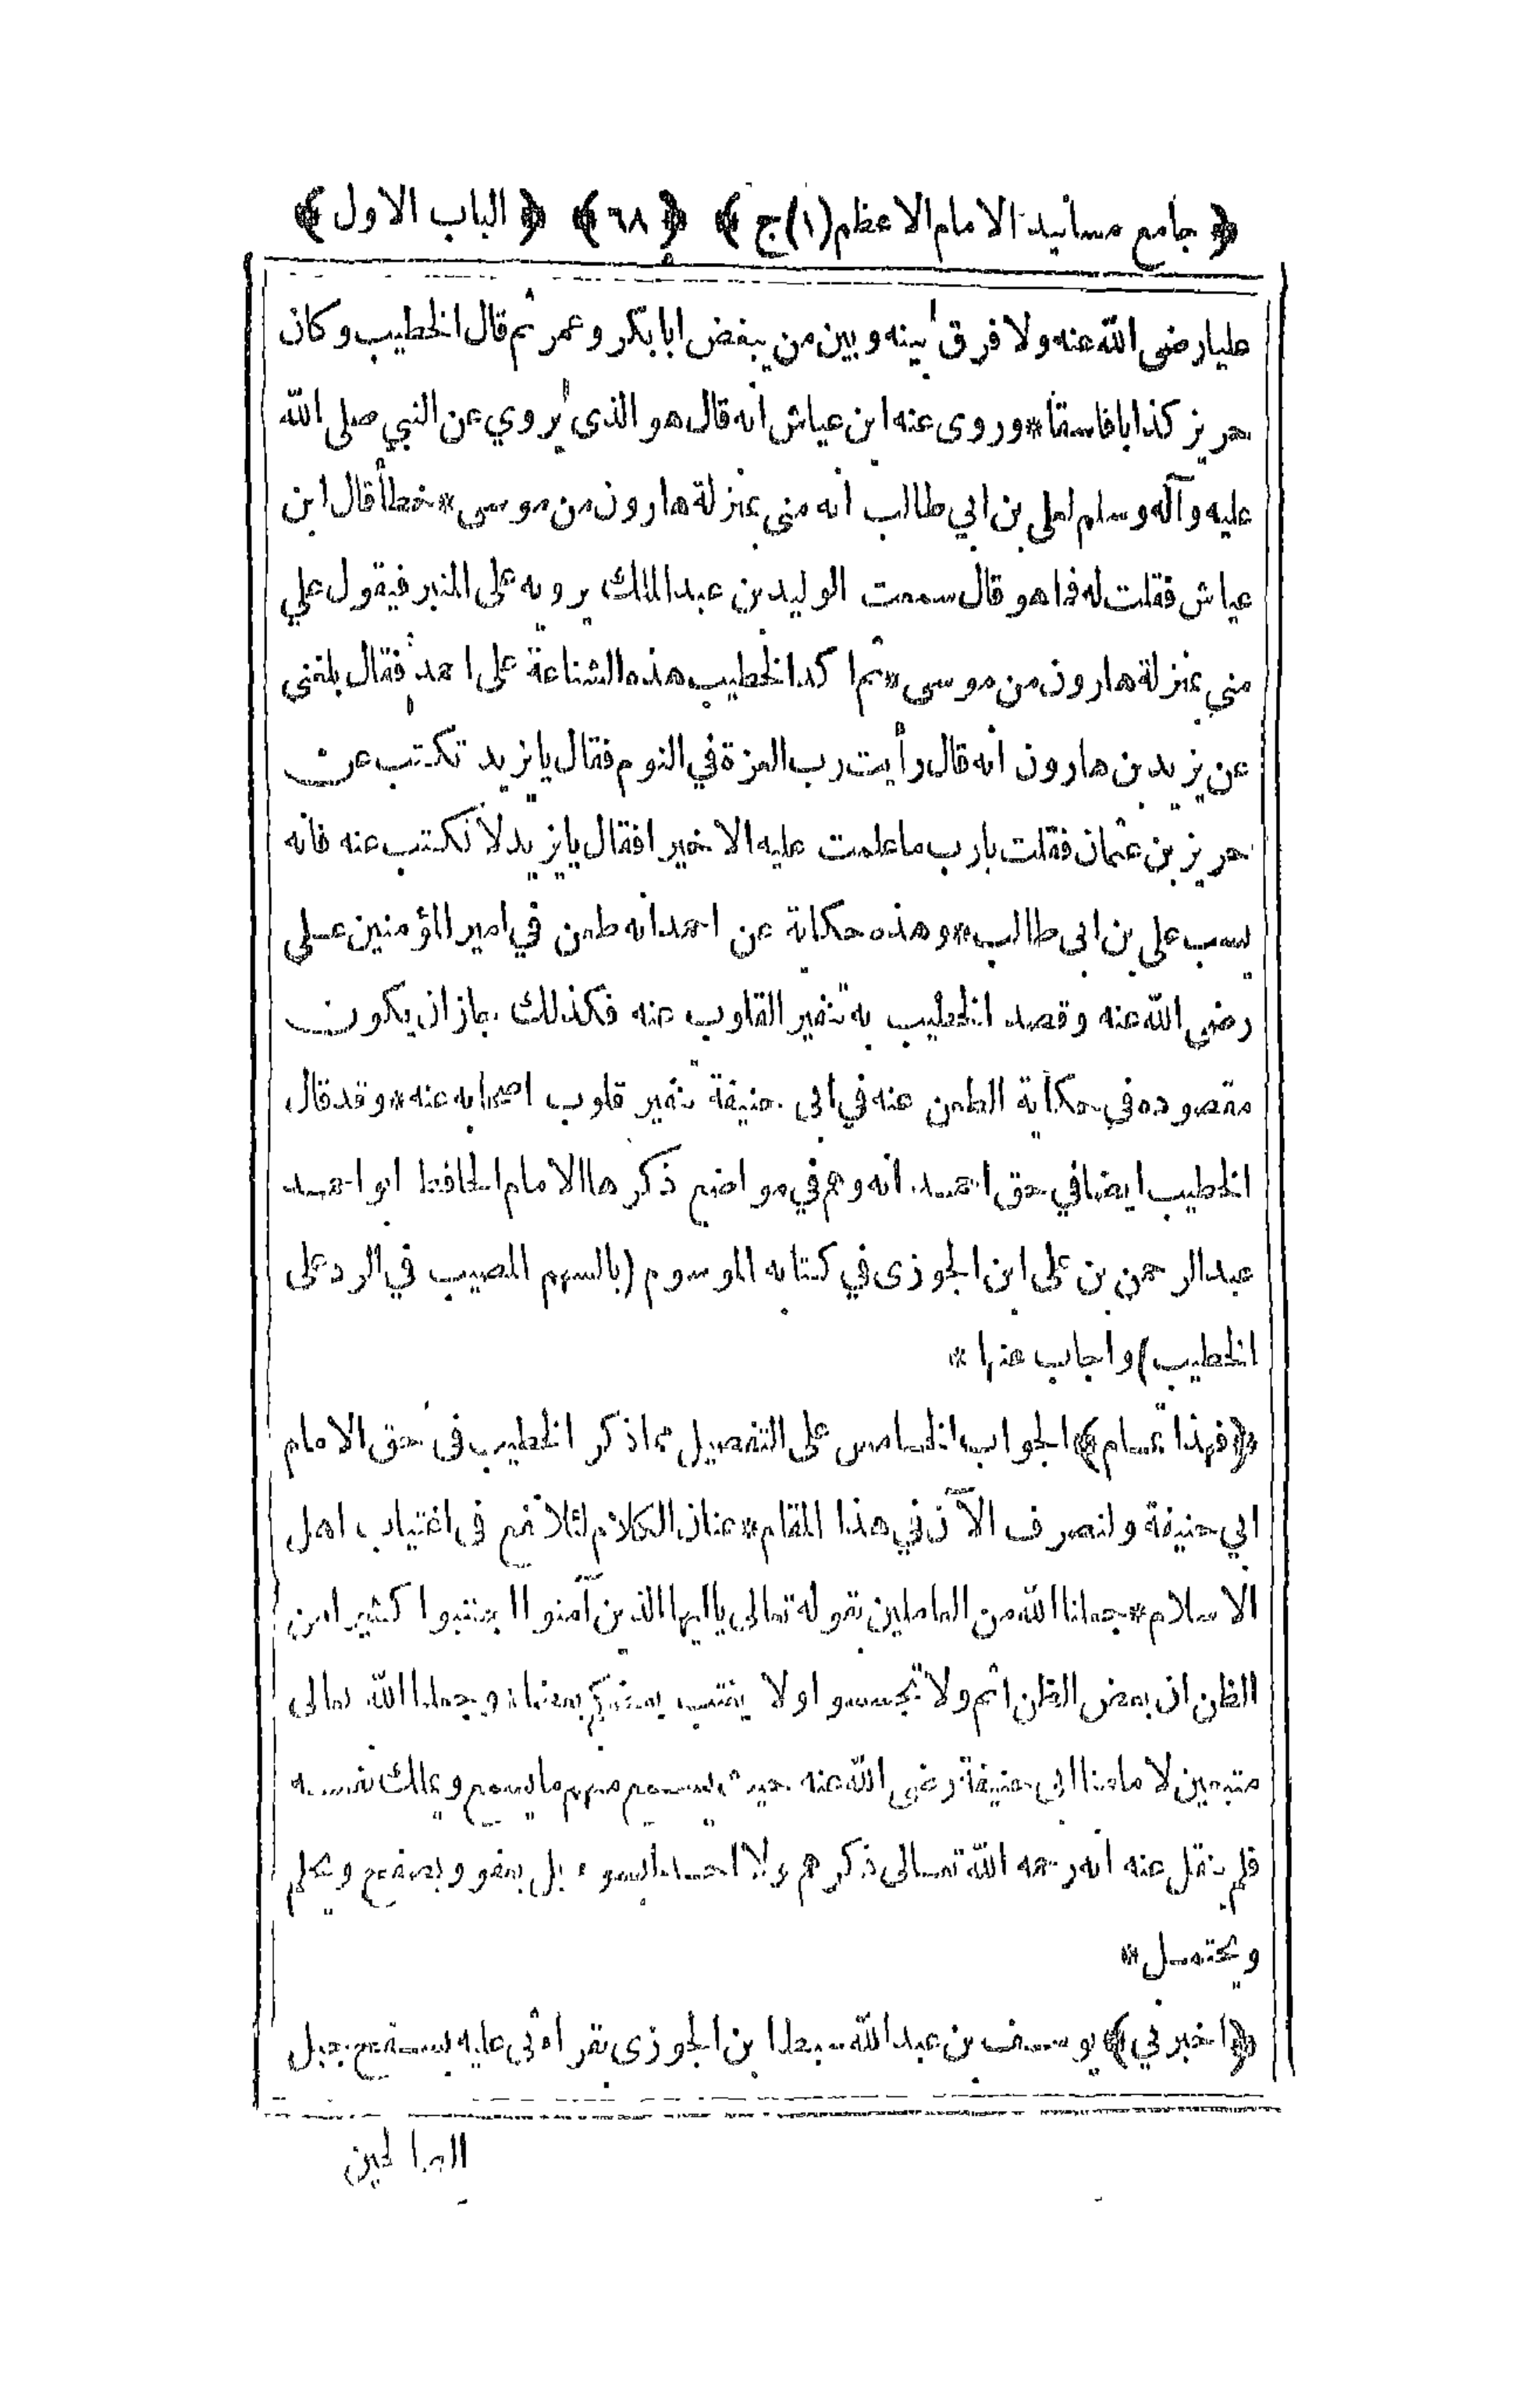 ﴿ جامع مسانيد الامام الاعظم (١) ج ﴾ ﴿ ٦٨ ﴾ ﴿ الباب الاول ﴾
عليا رضى الله عنه ولا فرق بينه وبين من يبغض ابا بكر وعمر ثم قال الخطيب وكان
حريز كذابا فاسقا * وروى عنه ابن عياش انه قال هو الذى يروي عن النبي صلى الله
عليه وآله وسلم لعلى بن ابي طالب انه مني بمنزلة هارون من موسى * خطأ قال ابن
عياش فقلت له فما هو قال سمعت الوليد بن عبد الملك يرويه على المنبر فيقول علي
مني بمنزلة هارون من موسى * ثم اكد الخطيب هذه الشناعة على احمد فقال بلغنى
عن يزيد بن هارون انه قال رأيت رب العزة في النوم فقال يا يزيد تكتب عن
حريز بن عثمان فقلت يارب ما علمت عليه الا خيرا فقال يا يزيد لا تكتب عنه فانه
يسب على بن ابى طالب * وهذه حكاية عن احمد انه طعن في امير المؤمنين عـلى
رضى الله عنه وقصد الخطيب به تنفير القلوب عنه فكذلك جاز ان يكون
مقصوده في حكاية الطعن عنه في ابى حنيفة تنفير قلوب اصحابه عنه * وقد قال
الخطيب ايضا في حق احمـد انه وهم في مواضع ذكرها الامام الحافظ ابو احمـد
عبد الرحمن بن على ابن الجوزى في كتابه الموسوم (بالسهم المصيب في الرد على
الخطيب) واجاب عنها *
﴿ فهذا تمـام ﴾ الجواب الخـامس على التفصيل مما ذكر الخطيب فى حق الامام
ابي حنيفة ولنصرف الآن في هذا المقام * عنان الكلام لئلا نقع فى اغتياب اهل
الاسلام * جعلنا الله من العاملين بقوله تعالى يا ايها الذين آمنوا اجتنبوا كثيرا من
الظن ان بعض الظن اثم ولا تجسسوا ولا يغتب بعضكم بعضا * وجعلنا الله تعالى
متبعين لامامنا ابى حنيفة رضى الله عنه حيث يسـمع منهم ما يسمع ويملك نفسـه
فلم ينقل عنه انه رحمه الله تعـالى ذكرهم ولا احـدا بسوء بل يعفو ويصفح ويحلم
ويحتمـل *
﴿ اخبرني ﴾ يوسـف بن عبد الله سبط ابن الجوزى بقراءتى عليه بسـفح جبل
الصالحين